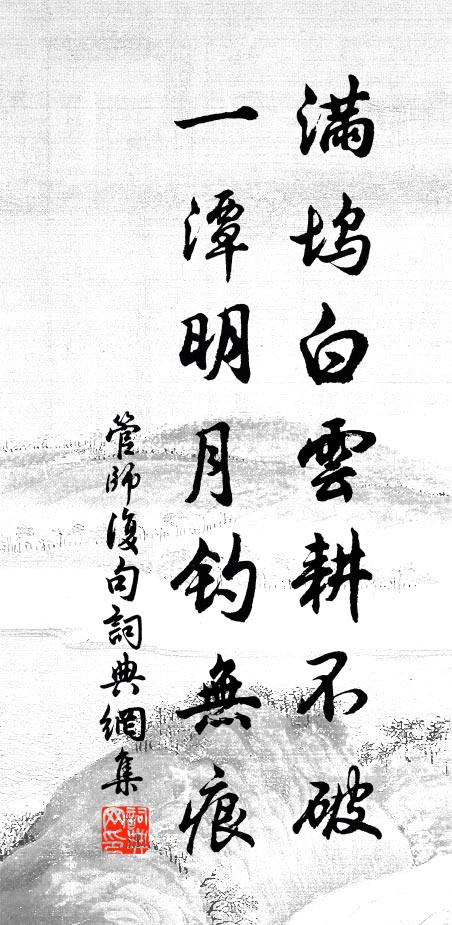 滿塢白雲耕不破
一潭明月釣無痕
管師復句詞典網集